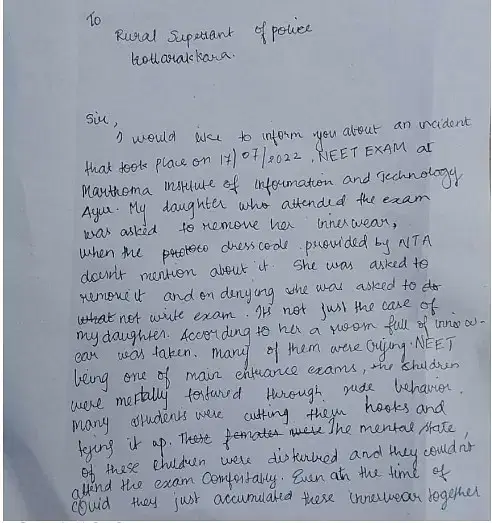 To
Rural Supettant of police
kottarakkara.
Sir,
I would like to inform you about an incident
that took place on 17/07/2022, NEET EXAM at
Marthoma Institute of Information and Technology
Ayur. My daughter who attended the exam
was asked to remove her innerwear,
when the dresscode provided by NTA
doesn't mention about it. She was asked to
remove it and on denying she was asked to do
what not write exam. Its not just the case of
my daughter. According to her a room full of innerw-
ear was taken. Many of them were crying. NEET
being one of main entrance exams, the children
were mentally tortured through rude behavior.
Many students were cutting their hooks and
tying it up. These females were The mental state
of these children were disturbed and they couldn't
attend the exam comfortably. Even at the time of
covid they just accumulated these innerwear together